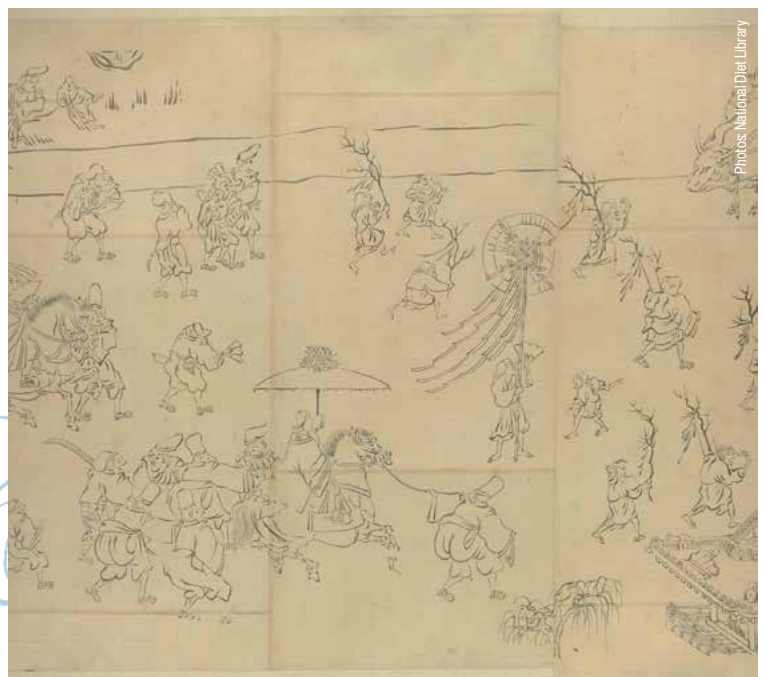 Photos: National Diet Library